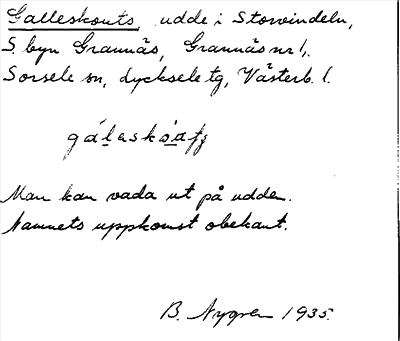 Galleskouts, udde i Storvindeln,
S. byn Grannäs, Grannäs nr 1,
Sorsele sn, Lycksele tg, Västerb. l.
Man kan vada ut på udden.
Namnets uppkomst obekant.
B. Nygren 1935.